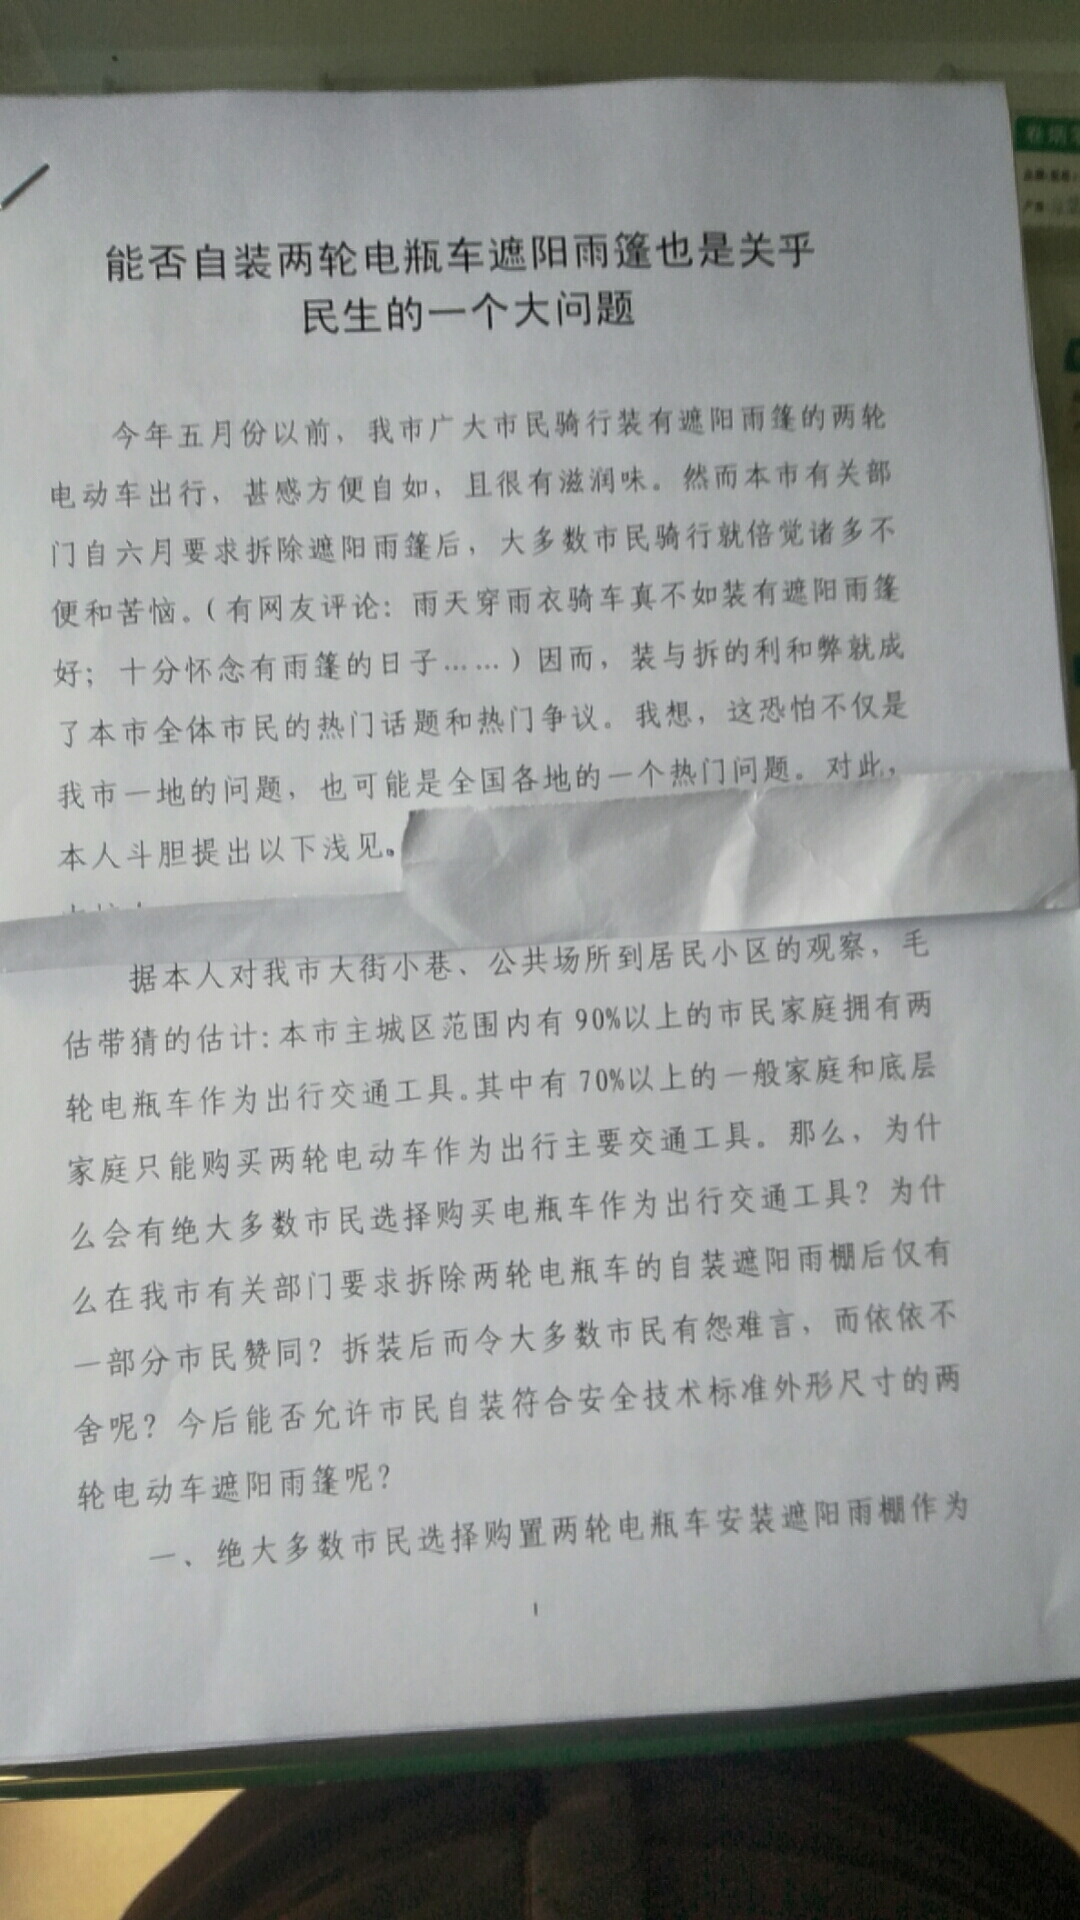 能否自装两轮电瓶车遮阳雨篷也是关乎
民生的一个大问题
今年五月份以前，我市广大市民骑行装有遮阳雨篷的两轮
电动车出行，甚感方便自如，且很有滋润味。然而本市有关部
门自六月要求拆除遮阳雨篷后，大多数市民骑行就倍觉诸多不
便和苦恼。（有网友评论：雨天穿雨衣骑车真不如装有遮阳雨篷
好；十分怀念有雨篷的日子……）因而，装与拆的利和弊就成
了本市全体市民的热门话题和热门争议。我想，这恐怕不仅是
我市一地的问题，也可能是全国各地的一个热门问题。对此，
本人斗胆提出以下浅见。
据本人对我市大街小巷、公共场所到居民小区的观察，毛
估带猜的估计：本市主城区范围内有90%以上的市民家庭拥有两
轮电瓶车作为出行交通工具。其中有70%以上的一般家庭和底层
家庭只能购买两轮电动车作为出行主要交通工具。那么，为什
么会有绝大多数市民选择购买电瓶车作为出行交通工具？为什
么在我市有关部门要求拆除两轮电瓶车的自装遮阳雨棚后仅有
一部分市民赞同？拆装后而令大多数市民有怨难言，而依依不
舍呢？今后能否允许市民自装符合安全技术标准外形尺寸的两
轮电动车遮阳雨篷呢？
一、绝大多数市民选择购置两轮电瓶车安装遮阳雨棚作为
1